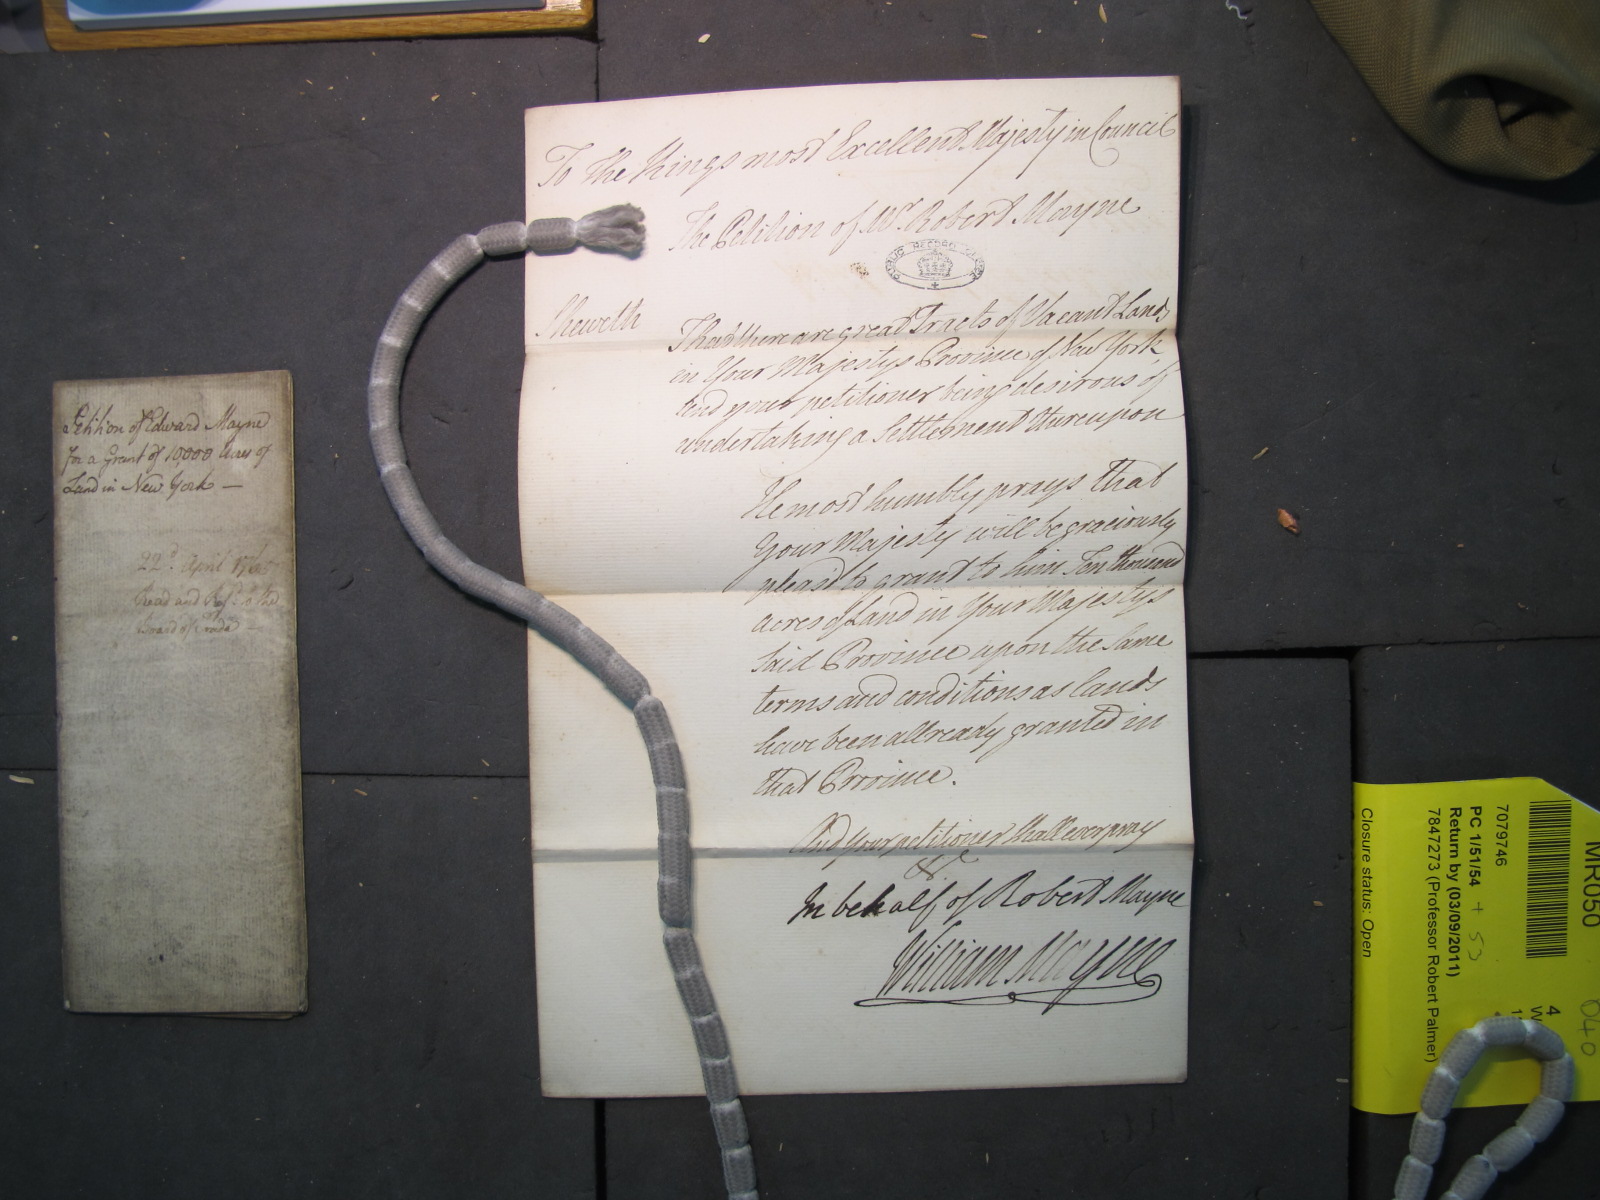 To the Kings most Excellent Majesty in Council
The Petition of Mr. Robert Mayne
PUBLIC RECORD OFFICE
Sheweth
That there are great Tracts of Vacant Lands
in Your Majestys Province of New York,
and your petitioner being desirous of
undertaking a Settlement thereupon
He most humbly prays that
Your Majesty will be graciously
pleas'd to grant to him Ten thousand
acres of Land in Your Majestys
said Province upon the same
terms and conditions as lands
have been allready granted in
that Province.
And Your petitioner shall ever pray
&c.
In behalf of Robert Mayne
William Mayne
Petition of Edward Mayne
for a Grant of 10,000 Acres of
Land in New York —
22d. April 1765
Read and Refd. to the
Board of Trade —
MR050
040
7079746
PC 1/51/54 + 53
Return by (03/09/2011)
7847273 (Professor Robert Palmer)
Closure status: Open
4